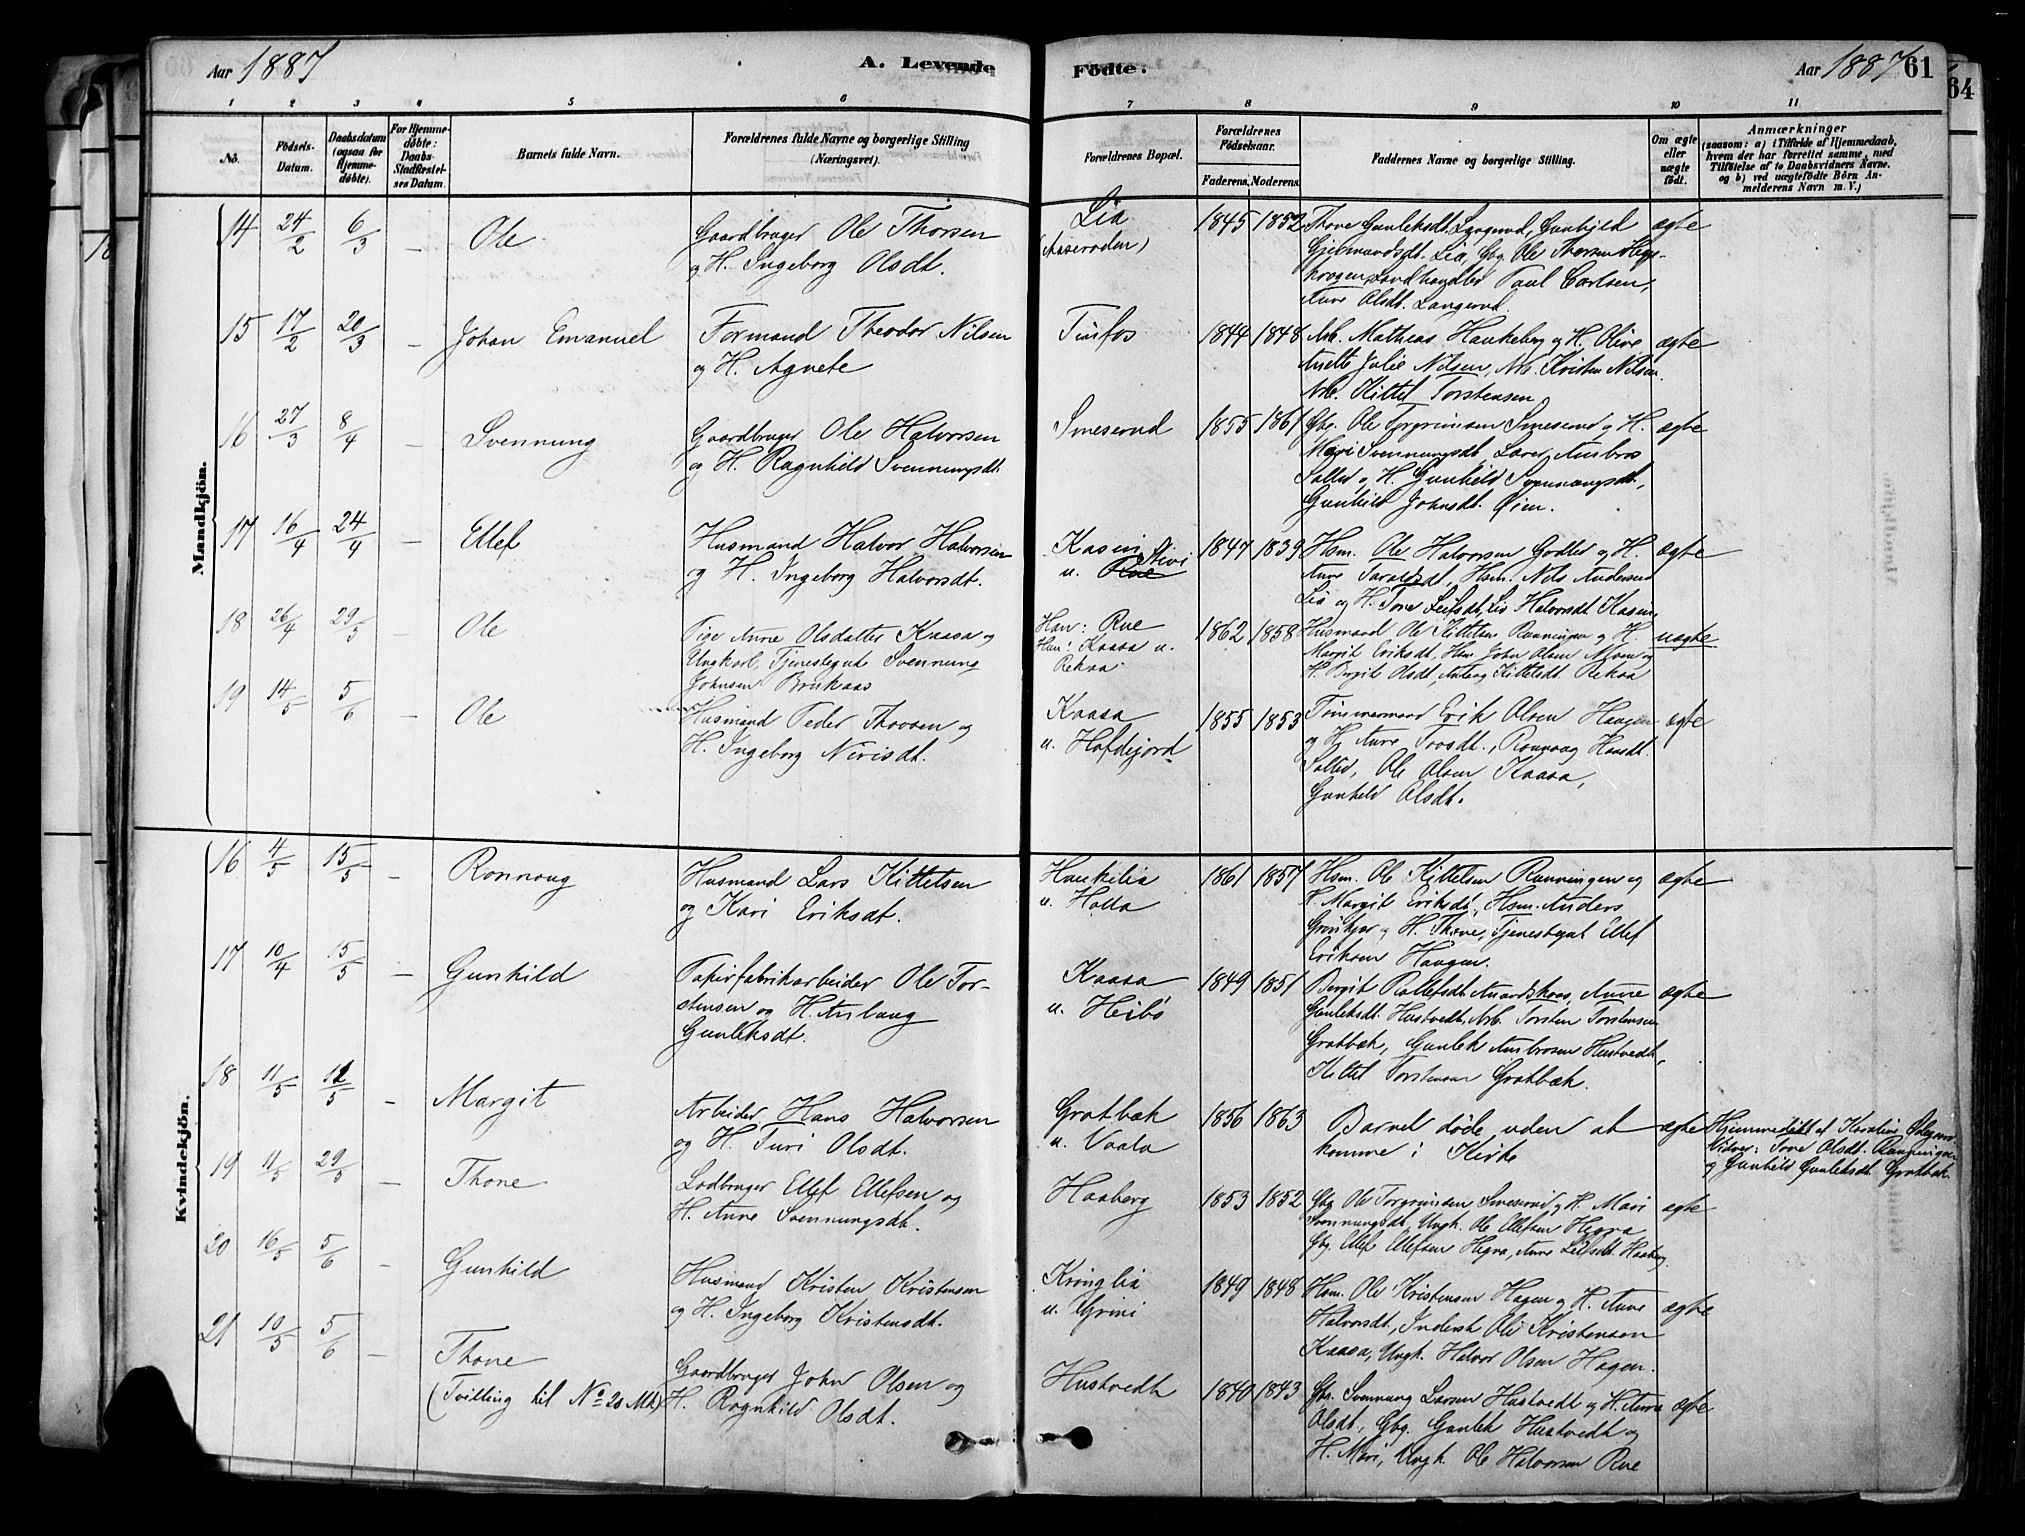 Aar 1887
A. Levende
Födte.
Aar 1887
61
64
1 2 3 4 5 6 7 8 9 10 11
No.
Födsels-
Datum.
Daabsdatum
(ogsaa for
Hjemme-
döbte).
For Hjemme-
döbte:
Daabs-
Stadfæstel-
ses Datum.
Barnets fulde Navn.
Forældrenes fulde Navne og borgerlige Stilling
(Næringsvei).
Forældrenes Bopæl.
Forældrenes
Födselsaar.
Faderens. Moderens.
Faddernes Navne og borgerlige Stilling.
Om ægte
eller
uægte
födt.
Anmærkninger
(saasom: a) i Tilfælde af Hjemmedaab,
hvem der har forrettet samme, med
Tilföielse af to Daabsvidners Navne.
og b) ved uægtefödte Börn An-
melderens Navn m. V.)
Mandkjön.
14 24/2 6/3 – Ole
Gaardbruger Ole Thorsen
og H. Ingeborg Olsdt.
Lia
1845 1852
Thone Gunleksdt. Langerud, Gunhild
Lia, Gbg. Ole Thorsen Hege-
krogen, Landhandler Paul Carlsen,
Anne Olsdt. Langerud
ægte
15 17/2 20/3 – Johan Emanuel
Formand Theodor Nilsen
og H. Agnete
Tinfos
1844 1848
Arb. Mathias Haukeberg og H. Olive
Anette Julie Nilsen, Arb. Kristen Nilsen
Arb. Kittel Torstensen
ægte
16 27/3 8/4 – Svennung
Gaardbruger Ole Halvorsen
og H. Ragnhild Svennungsdt.
Smeserud
1855 1861
Gbg. Ole Torgrimsen Smeserud og H.
Mari Svennungsdt, Lærer Ambros
og H. Gunhild Svennungsdt,
Gunhild Johnsdt. Øien.
ægte
17 16/4 24/4 – Ellef
Husmand Halvor Halvorsen
og H. Ingeborg Halvorsdt.
Kasin
u. Rue
1847 1839
Hsm. Ole Halvorsen Godlid og H.
Anne Taraldsdt, Hsm. Nils Andersen
Lia og H. Tone Leifsdt, Liv Halvorsdt Kasin
ægte
18 26/4 29/5 – Ole
Pige Anne Olsdatter Kaasa og
Ungkarl, Tjenestegut Svennung
Johnsen Brukaas
Han: Rue
Hun: Kaasa u.
Rekaa
1862 1858
Husmand Ole Kittelsen Rønningen og H.
Margit Eriksdt. Hsm. John Olsen Moen og
H. Birgit Olsdt, Kittelsdt Rekaa
uægte
19 14/5 5/6 – Ole
Husmand Peder Thovsen og
H. Ingeborg Nirisdt.
Kaasa
u. Hofdejord
1855 1853
Tömmermand Erik Olsen Haugen
og H. Anne Tovsdt., Rønnaug Hansdt.
Ole Olsen Kaasa,
Gunhild Olsdt.
ægte
Kvindekjön.
16 4/5 15/5 – Ronnoug
Husmand Lars Kittelsen
og Kari Eriksdt.
Haukelia
u. Holla
1861 1857
Hsm. Ole Kittelsen Rønningen og
H. Margit Eriksdt, Hsm. Anders
og H. Thone, Tjenestegut Ellef
Eriksen Haugen.
ægte
17 10/4 15/5 – Gunhild
Papirfabrikarbeider Ole Tor-
stensen og H. Anlaug
Gunleksdt.
Kaasa
u. Heibö
1849 1851
Birgit Rollefsdt. Anne
Gunleksdt. Hustvedt, Arb. Torsten Torstensen
Gratbæk, Gunlek Ambrosen Hustvedt,
Kittel Torstensen Gratbæk.
ægte
18 11/5 12/5 – Margit
Arbeider Hans Halvorsen
og H. Turi Olsdt.
Gratbæk
u. Vaala
1856 1863
Barnet døde uden at
komme i Kirke
ægte
Hjemmedøbt af Karoline
Vidner: Tone Olsdt. Rønningen
og Gunhild Gunleksdt. Gratbæk
19 11/5 29/5 – Thone
Lodbruger Ellef Ellefsen og
H. Anne Svennungsdt.
Haaberg
1853 1852
Gbg. Ole Torgrimsen Smeserud og H. Mari
Svennungsdt, Ungk. Ole Ellefsen Hegna
Gbg. Ellef Ellefsen Hegna, Anne Leifsdt. Haaberg
ægte
20 16/5 5/6 – Gunhild
Husmand Kristen Kristensen
og H. Ingeborg Kristensdt.
Kronglia
u. Grini
1849 1848
Hsm. Ole Kristensen Hagen og H. Anne
Halvorsdt., Inderst Ole Kristensen
Kaasa, Ungk. Halvor Olsen Hagen.
ægte
21 10/5 5/6 – Thone
(Tvilling til No 20 Mk)
Gaardbruger John Olsen og
H. Ragnhild Olsdt.
Hustvedt
1840 1843
Gbr. Svennung Larsen Hustvedt og H. Anne
Olsdt, Gbg. Gunlek Hustvedt og
H. Mari, Ungk. Ole Halvorsen Rue
ægte